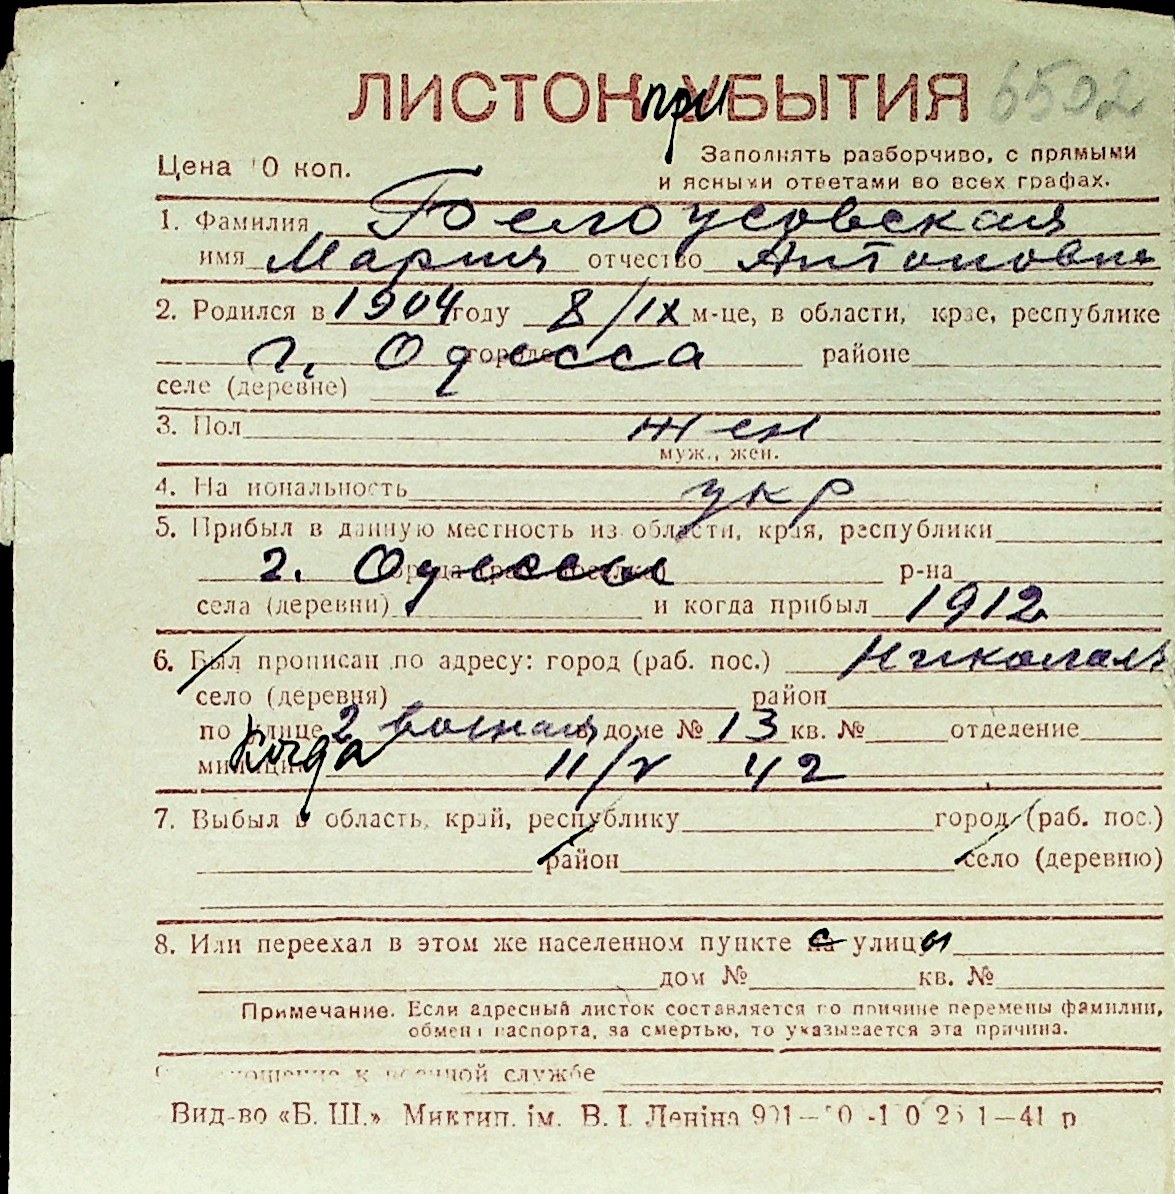 ЛИСТОК при УБЫТИЯ 6502
Цена 10 коп. Заполнять разборчиво, с прямыми
и ясными ответами во всех графах.
1. Фамилия Белоусовская
имя Мария отчество Антоновна
2. Родился в 1904 году 8/IX м-це, в области, крае, республике
г. Одесса городе районе
селе (деревне)
3. Пол жен
муж., жен.
4. Национальность укр
5. Прибыл в данную местность из области, края, республики
г. Одессы города (раб. поселка) р-на
села (деревни) и когда прибыл 1912
6. Был прописан по адресу: город (раб. пос.) Николаев
село (деревня) район
по улице 2 военная в доме № 13 кв. № отделение
милиции Когда 11/V 42
7. Выбыл в область, край, республику город (раб. пос.)
район село (деревню)
8. Или переехал в этом же населенном пункте на с улицы
дом № кв. №
Примечание. Если адресный листок составляется по причине перемены фамилии,
обмена паспорта, за смертью, то указывается эта причина.
отношение к военной службе
Вид-во «Б. Ш.» Миктип. ім. В. І. Леніна 1—41 р